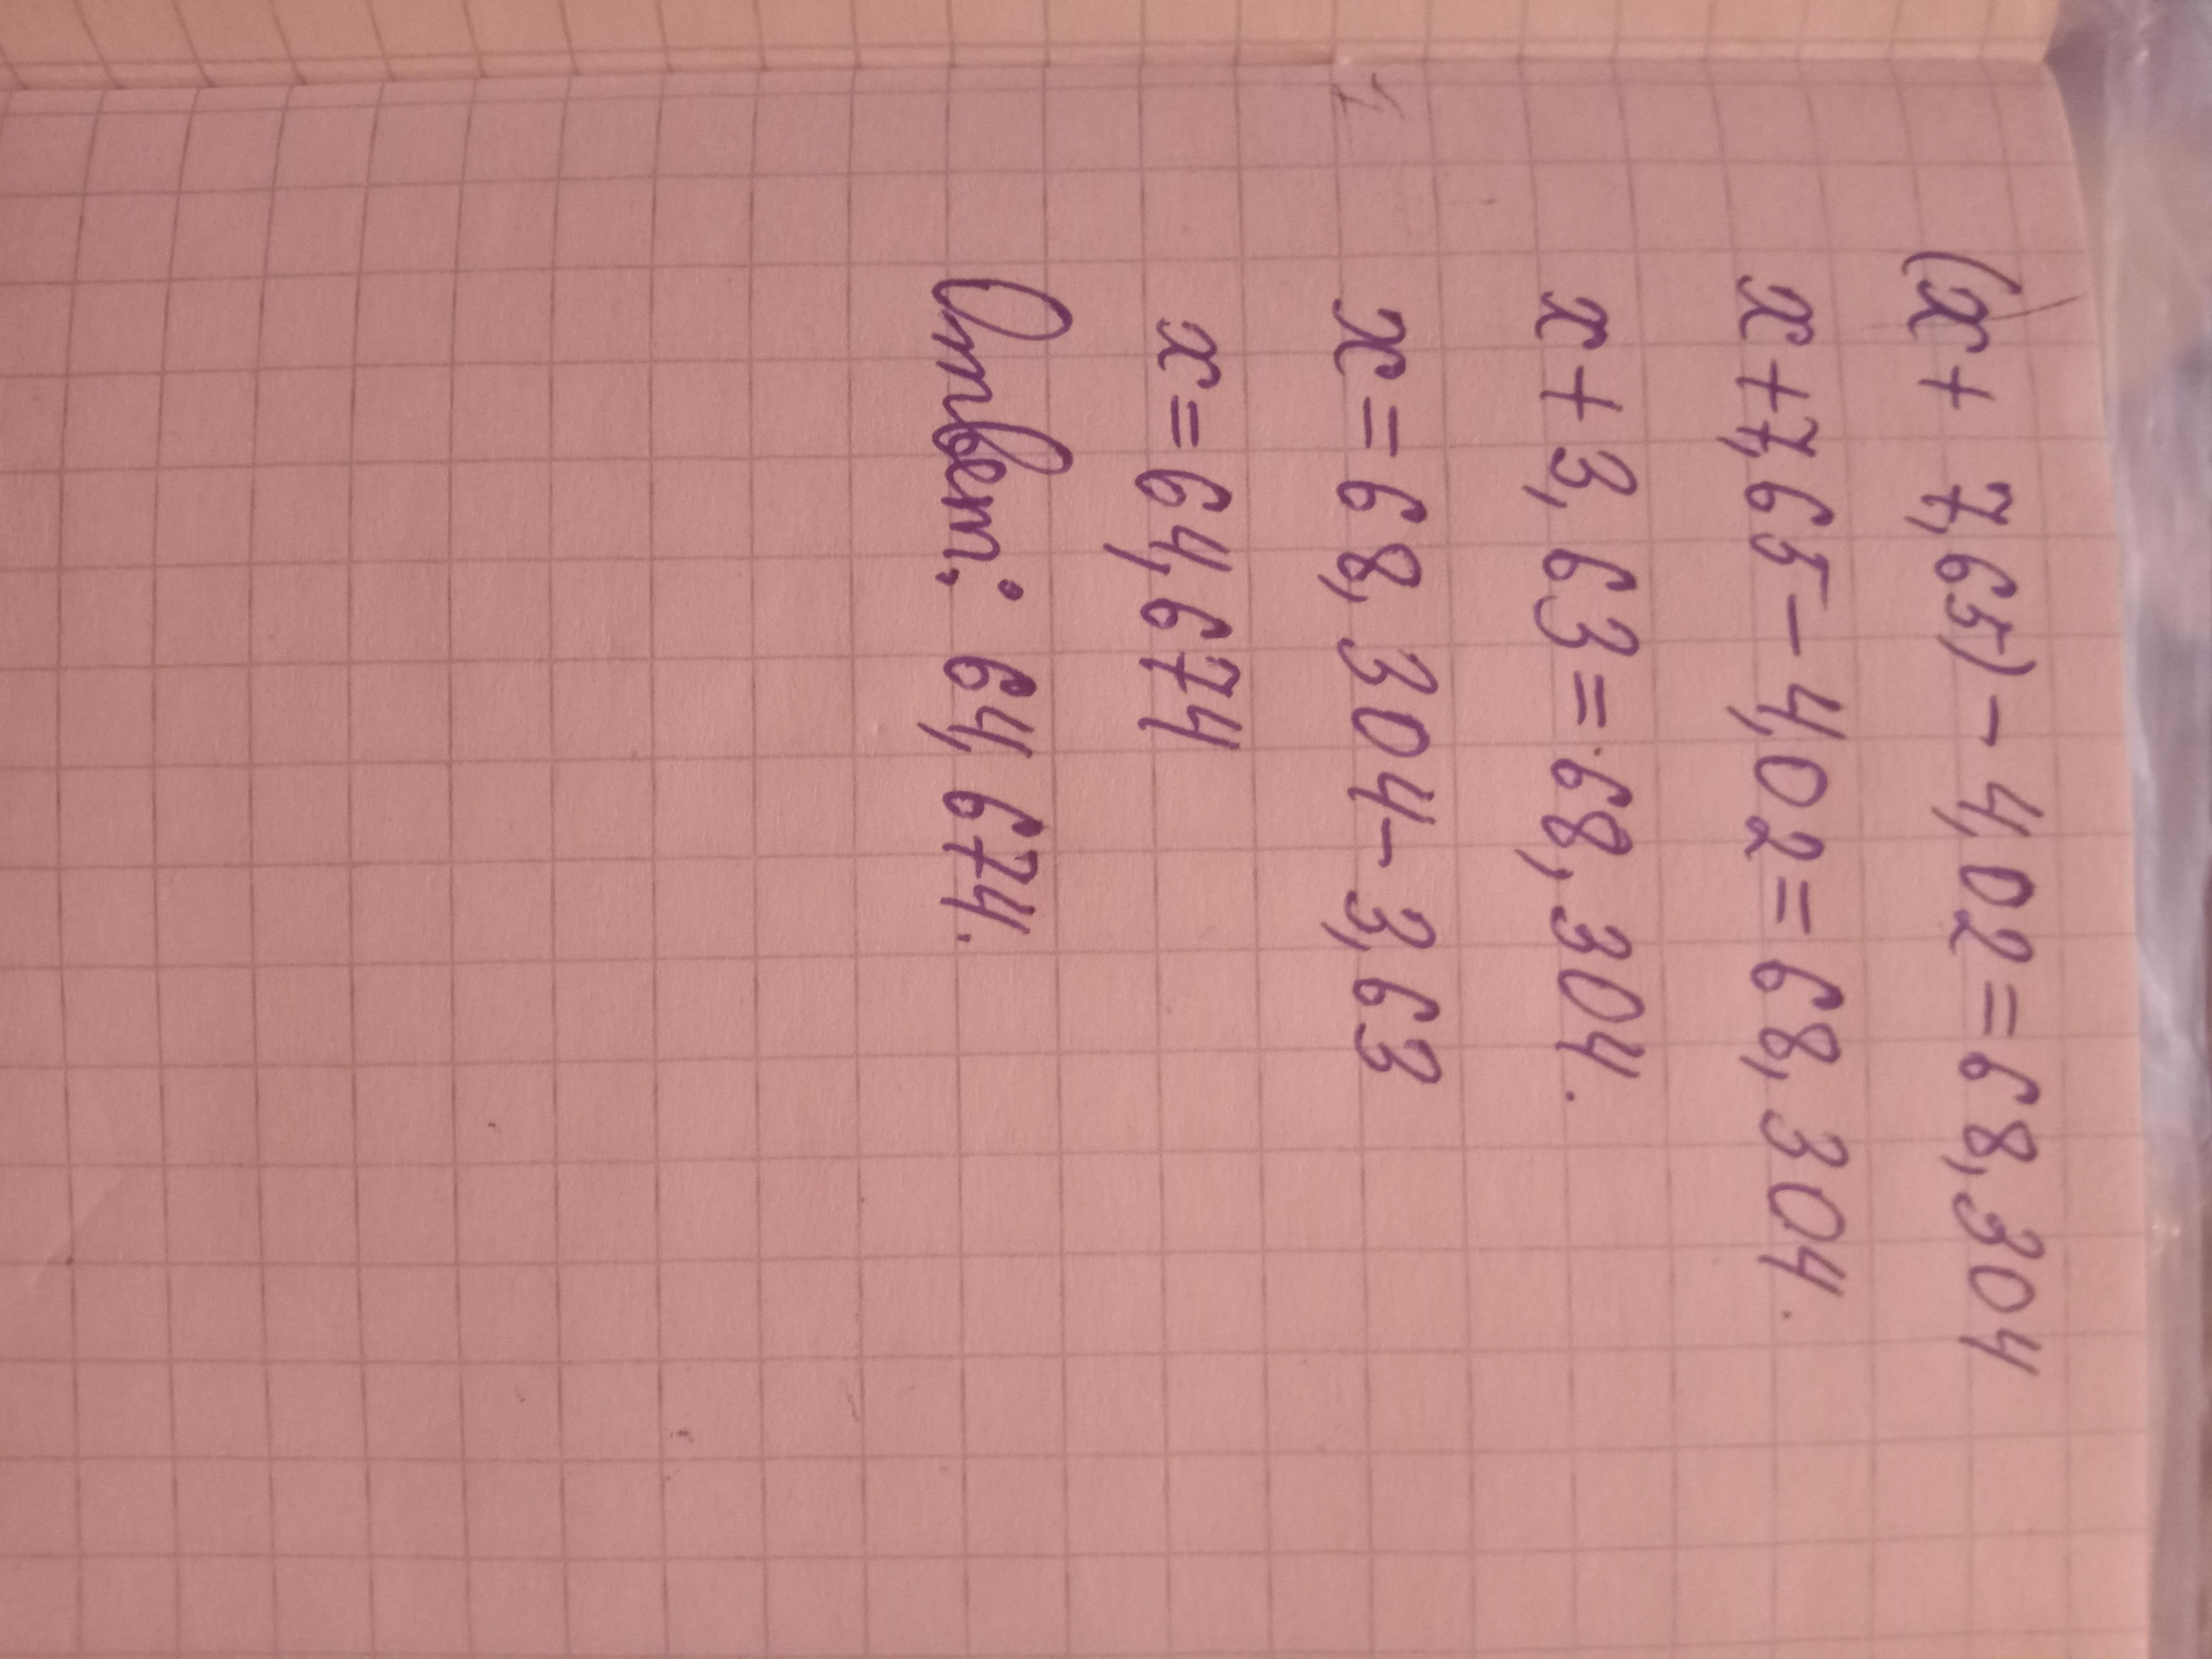 (x + 7,65) - 4,02 = 68,304
x + 7,65 - 4,02 = 68,304.
x + 3,63 = 68,304.
x = 68,304 - 3,63
x = 64,674
Ответ: 64,674.